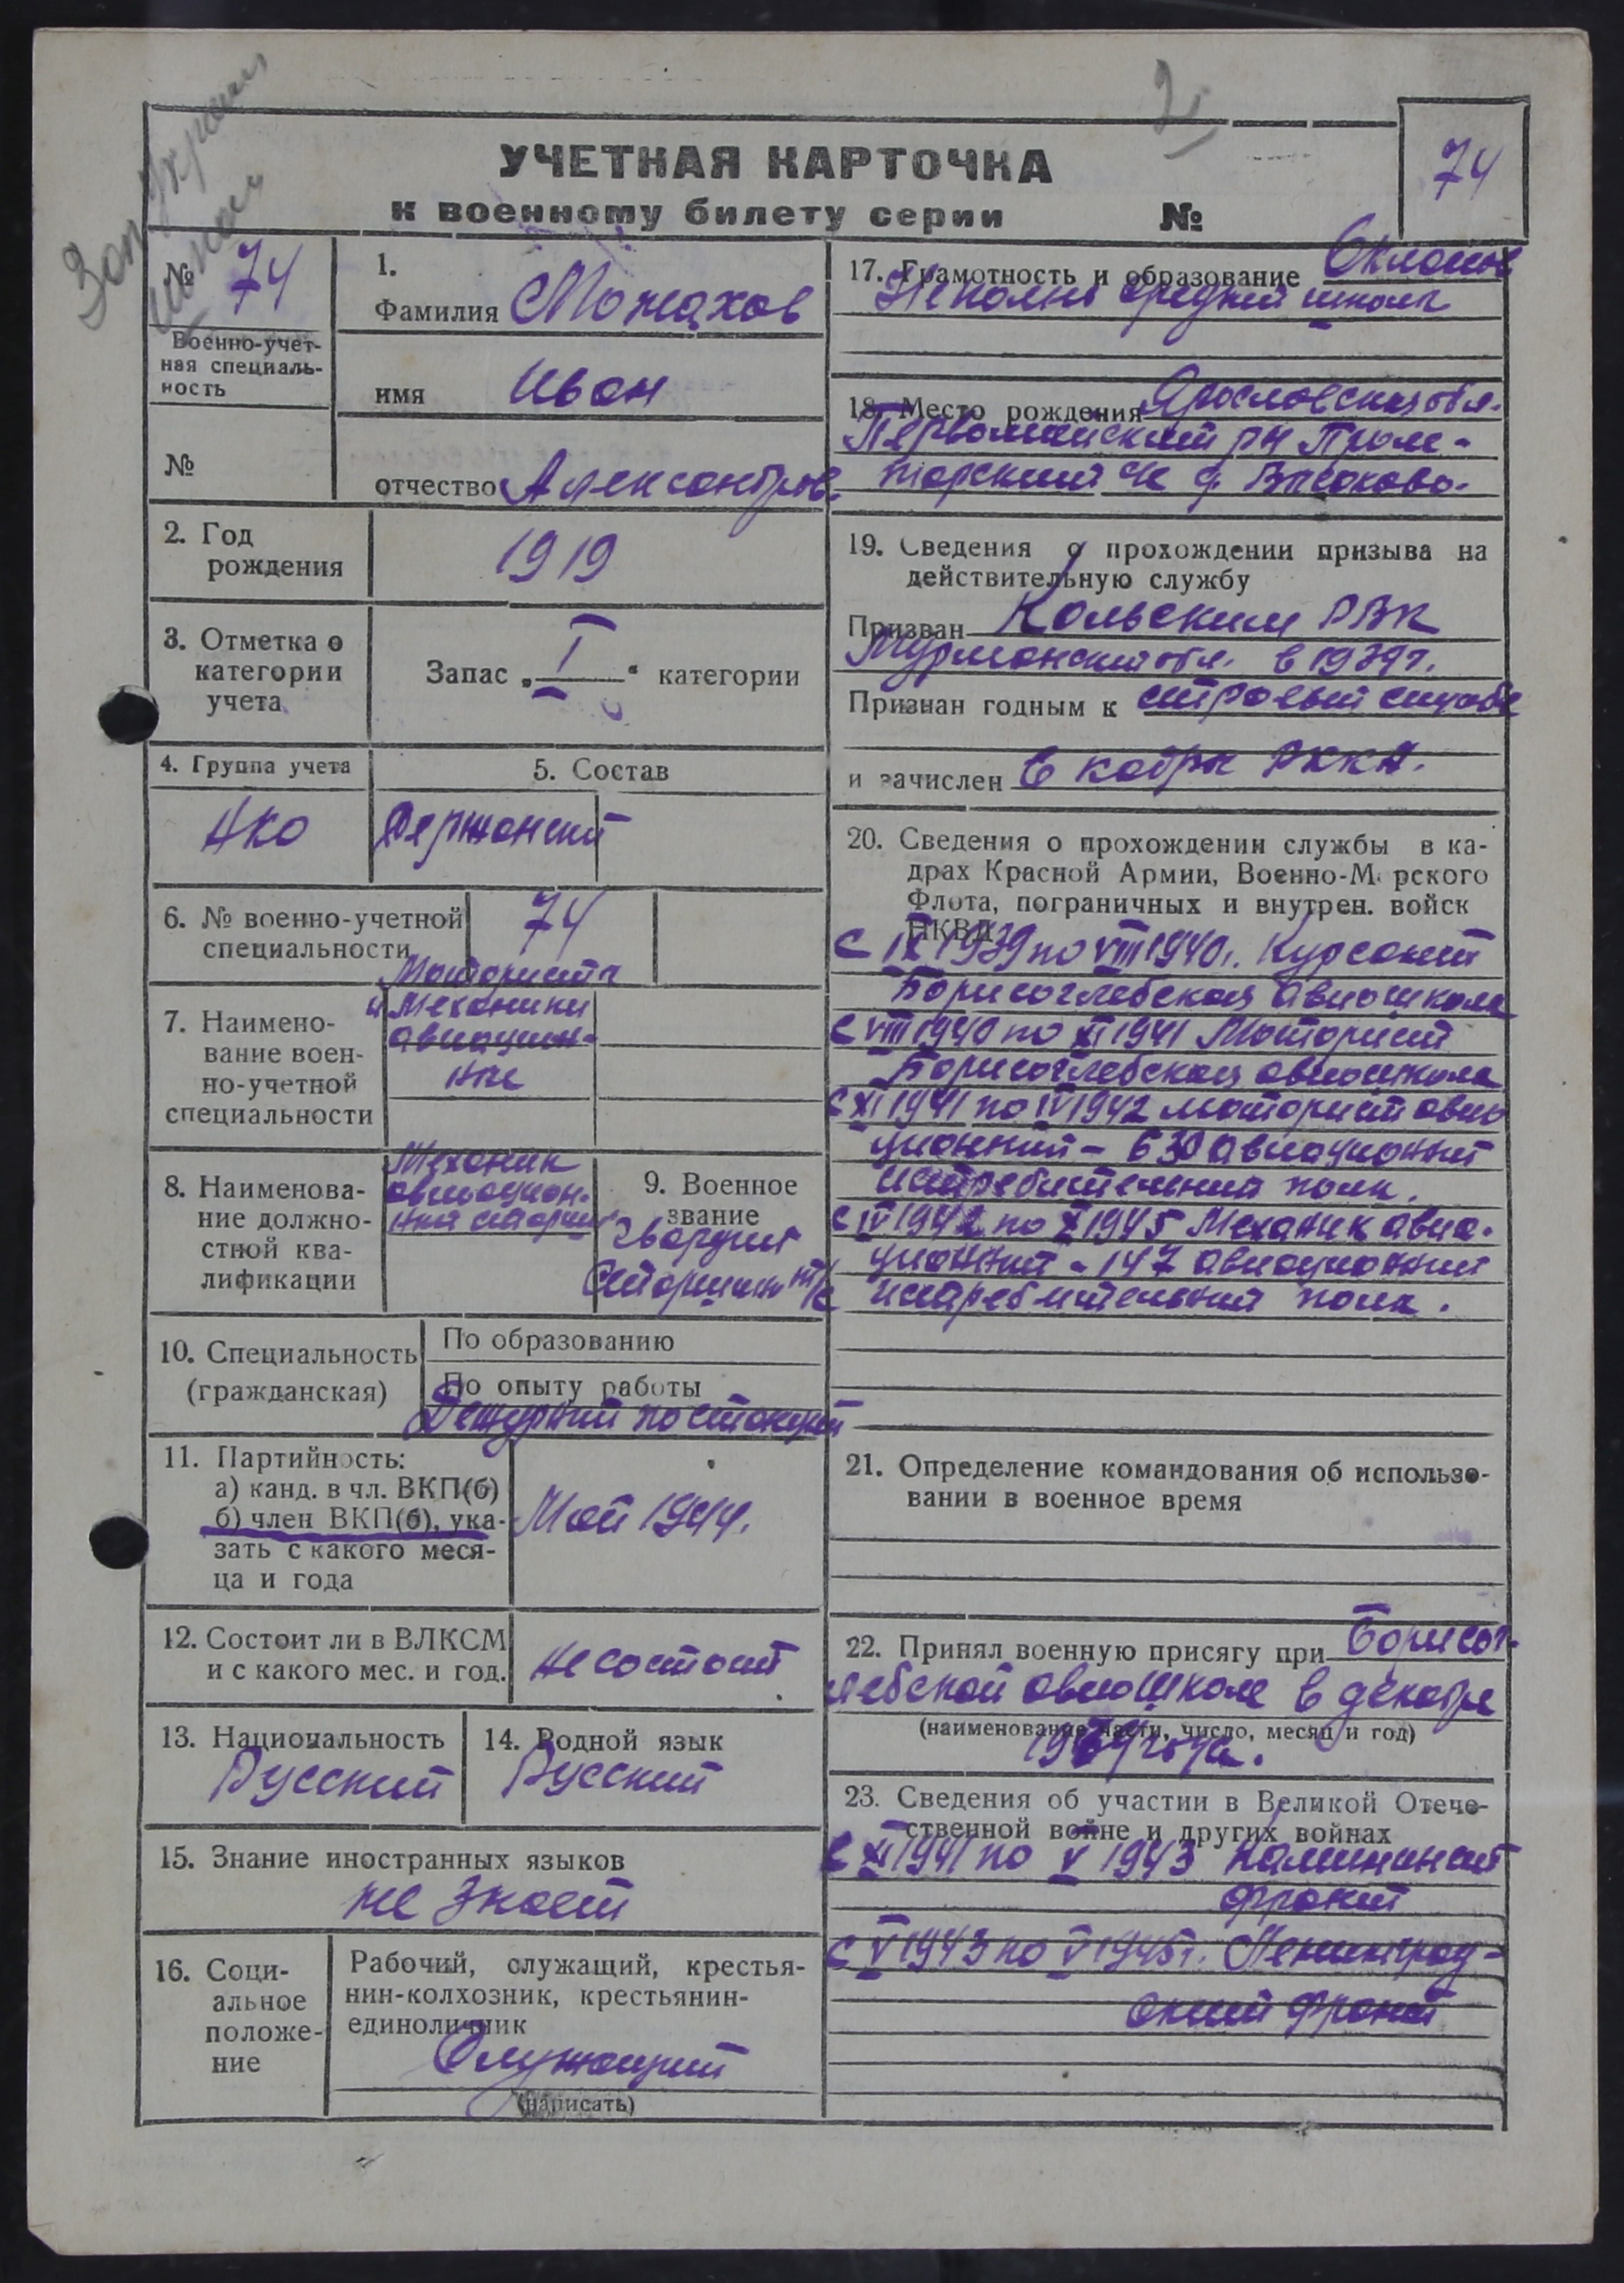 2
УЧЕТНАЯ КАРТОЧКА
к военному билету серии №
74
№ 74
Военно-учет-
ная специаль-
ность
№
1.
Фамилия Можахов
имя Иван
отчество Александров.
2. Год
рождения
1919
3. Отметка о
категории
учета
Запас „ I “ категории
4. Группа учета
5. Состав
Сержанский
6. № военно-учетной
специальности
74
7. Наимено-
вание воен-
но-учетной
специальности
Мотористы
и механики
авиацион-
ные
8. Наименова-
ние должно-
стной ква-
лификации
Механик
авиацион-
ный старший
9. Военное
звание
Гвардии
Старшина т/с
10. Специальность
(гражданская)
По образованию
По опыту работы
Дежурный по станции
11. Партийность:
а) канд. в чл. ВКП(б)
б) член ВКП(б), ука-
зать с какого меся-
ца и года
Май 1944.
12. Состоит ли в ВЛКСМ
и с какого мес. и год.
не состоит
13. Национальность
Русский
14. Родной язык
Русский
15. Знание иностранных языков
не знает
16. Соци-
альное
положе-
ние
Рабочий, служащий, крестья-
нин-колхозник, крестьянин-
единоличник
Служащий
(написать)
17. Грамотность и образование
средней школы
18. Место рождения Ярославская обл.
Первомайский рн
д. Высоково.
19. Сведения о прохождении призыва на
действительную службу
Призван Кольским РВК
Мурманский обл. в 1939 г.
Признан годным к строевой службе
и зачислен в кадры РККА.
20. Сведения о прохождении службы в ка-
драх Красной Армии, Военно-Морского
Флота, пограничных и внутрен. войск
НКВД
С IX 1939 по VIII 1940 г. Курсант
Борисоглебская авиошкола
С VIII 1940 по XI 1941 Моторист
Борисоглебская авиошкола
С XI 1941 по IV 1942 моторист авиа
ционный - 630 авиационный
истребительный полк.
С IV 1942 по X 1945 Механик авиа-
ционный - 147 авиационный
истребительный полк.
21. Определение командования об использо-
вании в военное время
22. Принял военную присягу при Борисог-
лебской авиошколе в декабре
(наименование части, число, месяц и год)
1939 года.
23. Сведения об участии в Великой Отече-
ственной войне и других войнах
С XI 1941 по V 1943 Калининский
фронт
С V 1943 по V 1945 г. Ленинград-
ский фронт